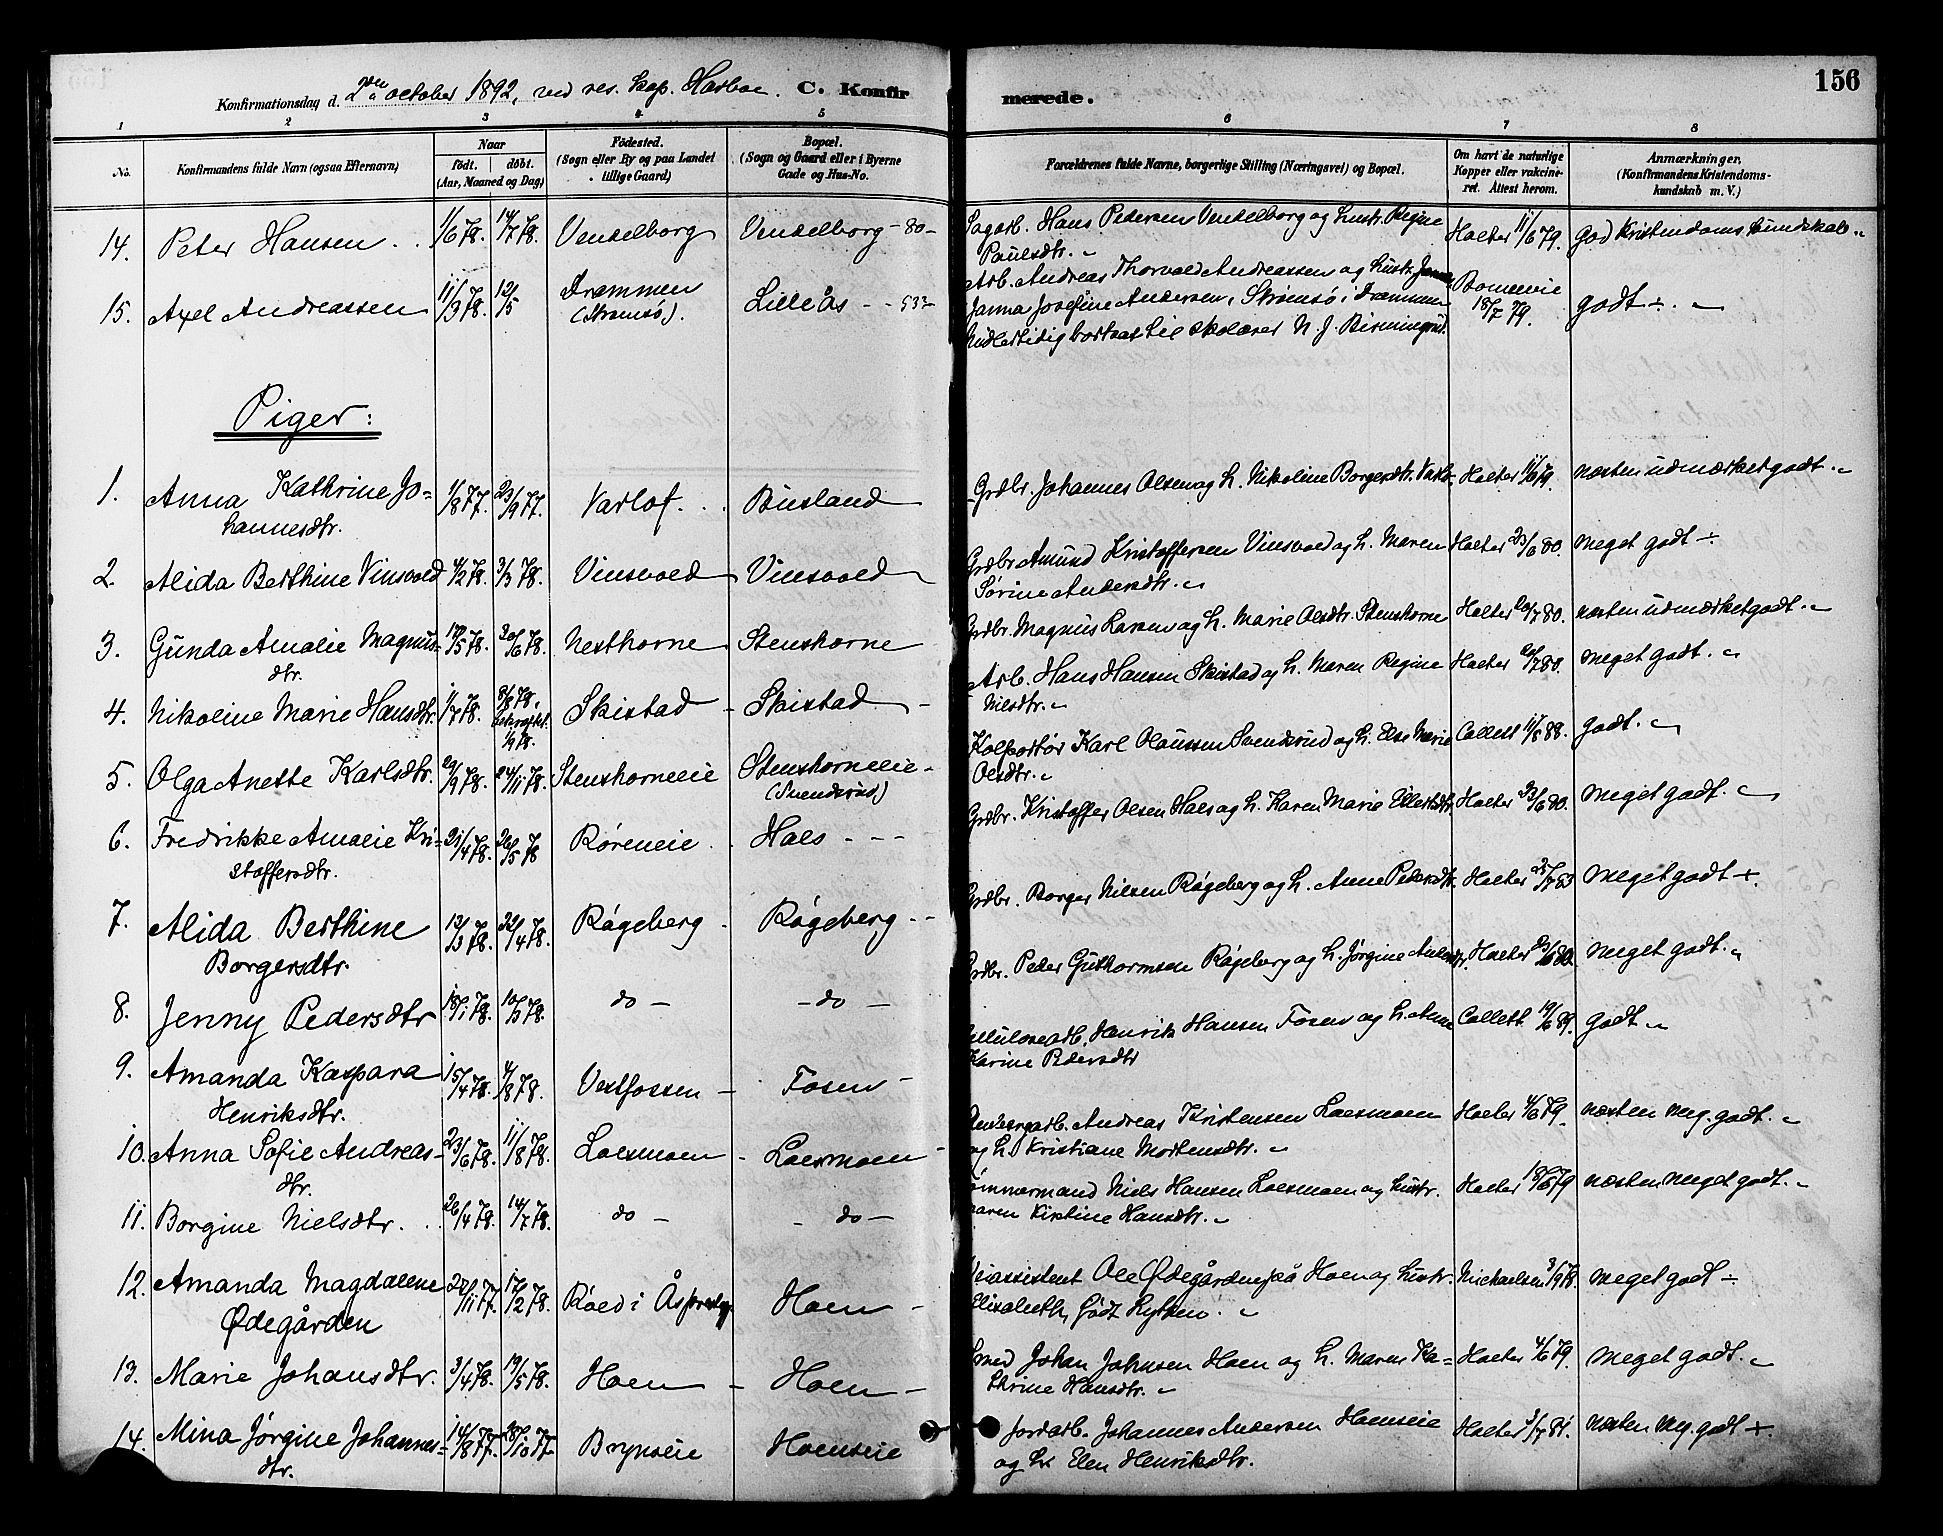 156
Konfirmationsdag d. 2den october 1892, ved res. kap. C. Konfirmerede.
1 2 3 4 5 6 7 8
No. Konfirmandens fulde Navn (ogsaa Efternavn) Naar født. døbt. (Aar, Maaned og Dag) Fødested. (Sogn eller By og paa Landet tillige Gaard) Bopæl. (Sogn og Gaard eller i Byerne Gade og Hus-No. Forældrenes fulde Navne, borgerlige Stilling (Næringsvei) og Bopæl. Om havt de naturlige Kopper eller vakcineret. Attest herom. Anmærkninger, (Konfirmandens Kristendomskundskab m. V.)
14. Peter Hansen 1/6 78. 14/7 78. Vendelborg Vendelborg - 80 - Sagarb. Hans Pedersen Vendelborg og hustr. Regine Paulsdtr. Holter 11/6 79. god Kristendoms kundskab
15. Axel Andreassen 11/3 78. 12/5 Drammen (Strømsø). Lilleås - - 533 Arb. Andreas Thorvald Andreassen og hustr.
Janna Josefine Andersen, Strømsø i Drammen 18/7 79. godt ÷
midlertidig bortsat til skolelærer N. J.
Piger:
1. Anna Kathrine Johannesdtr. 1/8 77. 23/9 77. Varlo Busland Grdbr. Johannes Olsen og h. Nikoline Borgersdtr. Holter 11/6 79. næsten udmærket godt.
2. Alida Berthine Vinsvold 4/2 78. 3/3 78. Vinsvold Vinsvold Grdbr. Amund Kristoffersen Vinsvold og h. Maren Sørine Andersdtr. Holter 23/6 80. meget godt ÷
3. Gunda Amalie Magnusdtr. 17/5 78. 30/6 78. Nesthorne Stenshorne Grdbr. Magnus Larsen og h. Marie Olsdtr. Stenshorne Holter 20/7 80. næsten udmærket godt.
4. Nikoline Marie Hansdtr. 1/7 78. 8/8 78, bekræftet 1/9 78. Skistad - Skistad - Arb. Hans Hansen Skistad og h. Maren Regine Nilsdtr. Holter 20/7 80. meget godt.
5. Olga Anette Karlsdtr. 29/9 78. 24/11 78. Stenshorneeie Stenshorneeie - (Svendsrud) Kolportør Karl Olaussen Svendsrud og h. Else Marie Olsdtr. Collett 11/8 88. godt.
6. Fredrikke Amalie Kristoffersdtr. 21/4 78. 26/5 78 Røreneie Hals - - - Grdbr. Kristoffer Olsen Hals og h. Karen Marie Ellertsdtr. Holter 23/6 80. meget godt.
7. Alida Berthine Borgersdtr. 13/3 78. 22/4 78. Røgeberg Røgeberg - - Grdbr. Borger Nilsen Røgeberg og h. Anne Pedersdtr. Holter 25/7 83 meget godt +.
8. Jenny Pedersdtr 18/1 78. 10/3 78. do - - do - Grdbr. Peder Guttormsen Røgeberg og h. Jørgine Holter 23/6 80. meget godt.
9. Amanda Kaspara Henriksdtr. 15/4 78. 4/8 78. Vestfossen - Fosen - Cellulosearb. Henrik Hansen Fosen og h. Anne Karine Pedersdtr Collett. 19/6 89. godt
10. Anna Sofie Andreasdtr. 23/6 78. 11/8 78. Loesmoen - Loesmoen - Andreas Kristensen Loesmoen og h. Kristiane Mortensdtr. Holter 4/6 79. næsten meg. godt.
11. Borgine Nielsdtr. 26/4 78. 14/7 78. do - - do - Tømmermand Niels Hansen Loesmoen og hustr. Karen Kistine Hansdtr. Holter 18/6 79 næsten meget godt.
12. Amanda Magdalene Ødegården 27/11 77. 17/2 78. Roed i Hoen - Veiassistent Ole Ødegården på Hoen og hustr. Elisabeth, født Michaelsen 3/9 78. meget godt ÷
13. Marie Johansdtr. 3/4 78. 19/5 78. Hoen - Hoen - Smed Johan Johnsen Hoen og h. Maren Kathrine Hansdtr. Holter 4/6 79. meget godt.
14. Mina Jørgine Johannesdtr. 14/8 77. 28/10 77. Brynseie Hoenseie Jordarb. Johannes Andersen Hoenseie og h. Elen Henriksdtr. Holter 3/7 81. næsten meg. godt +.